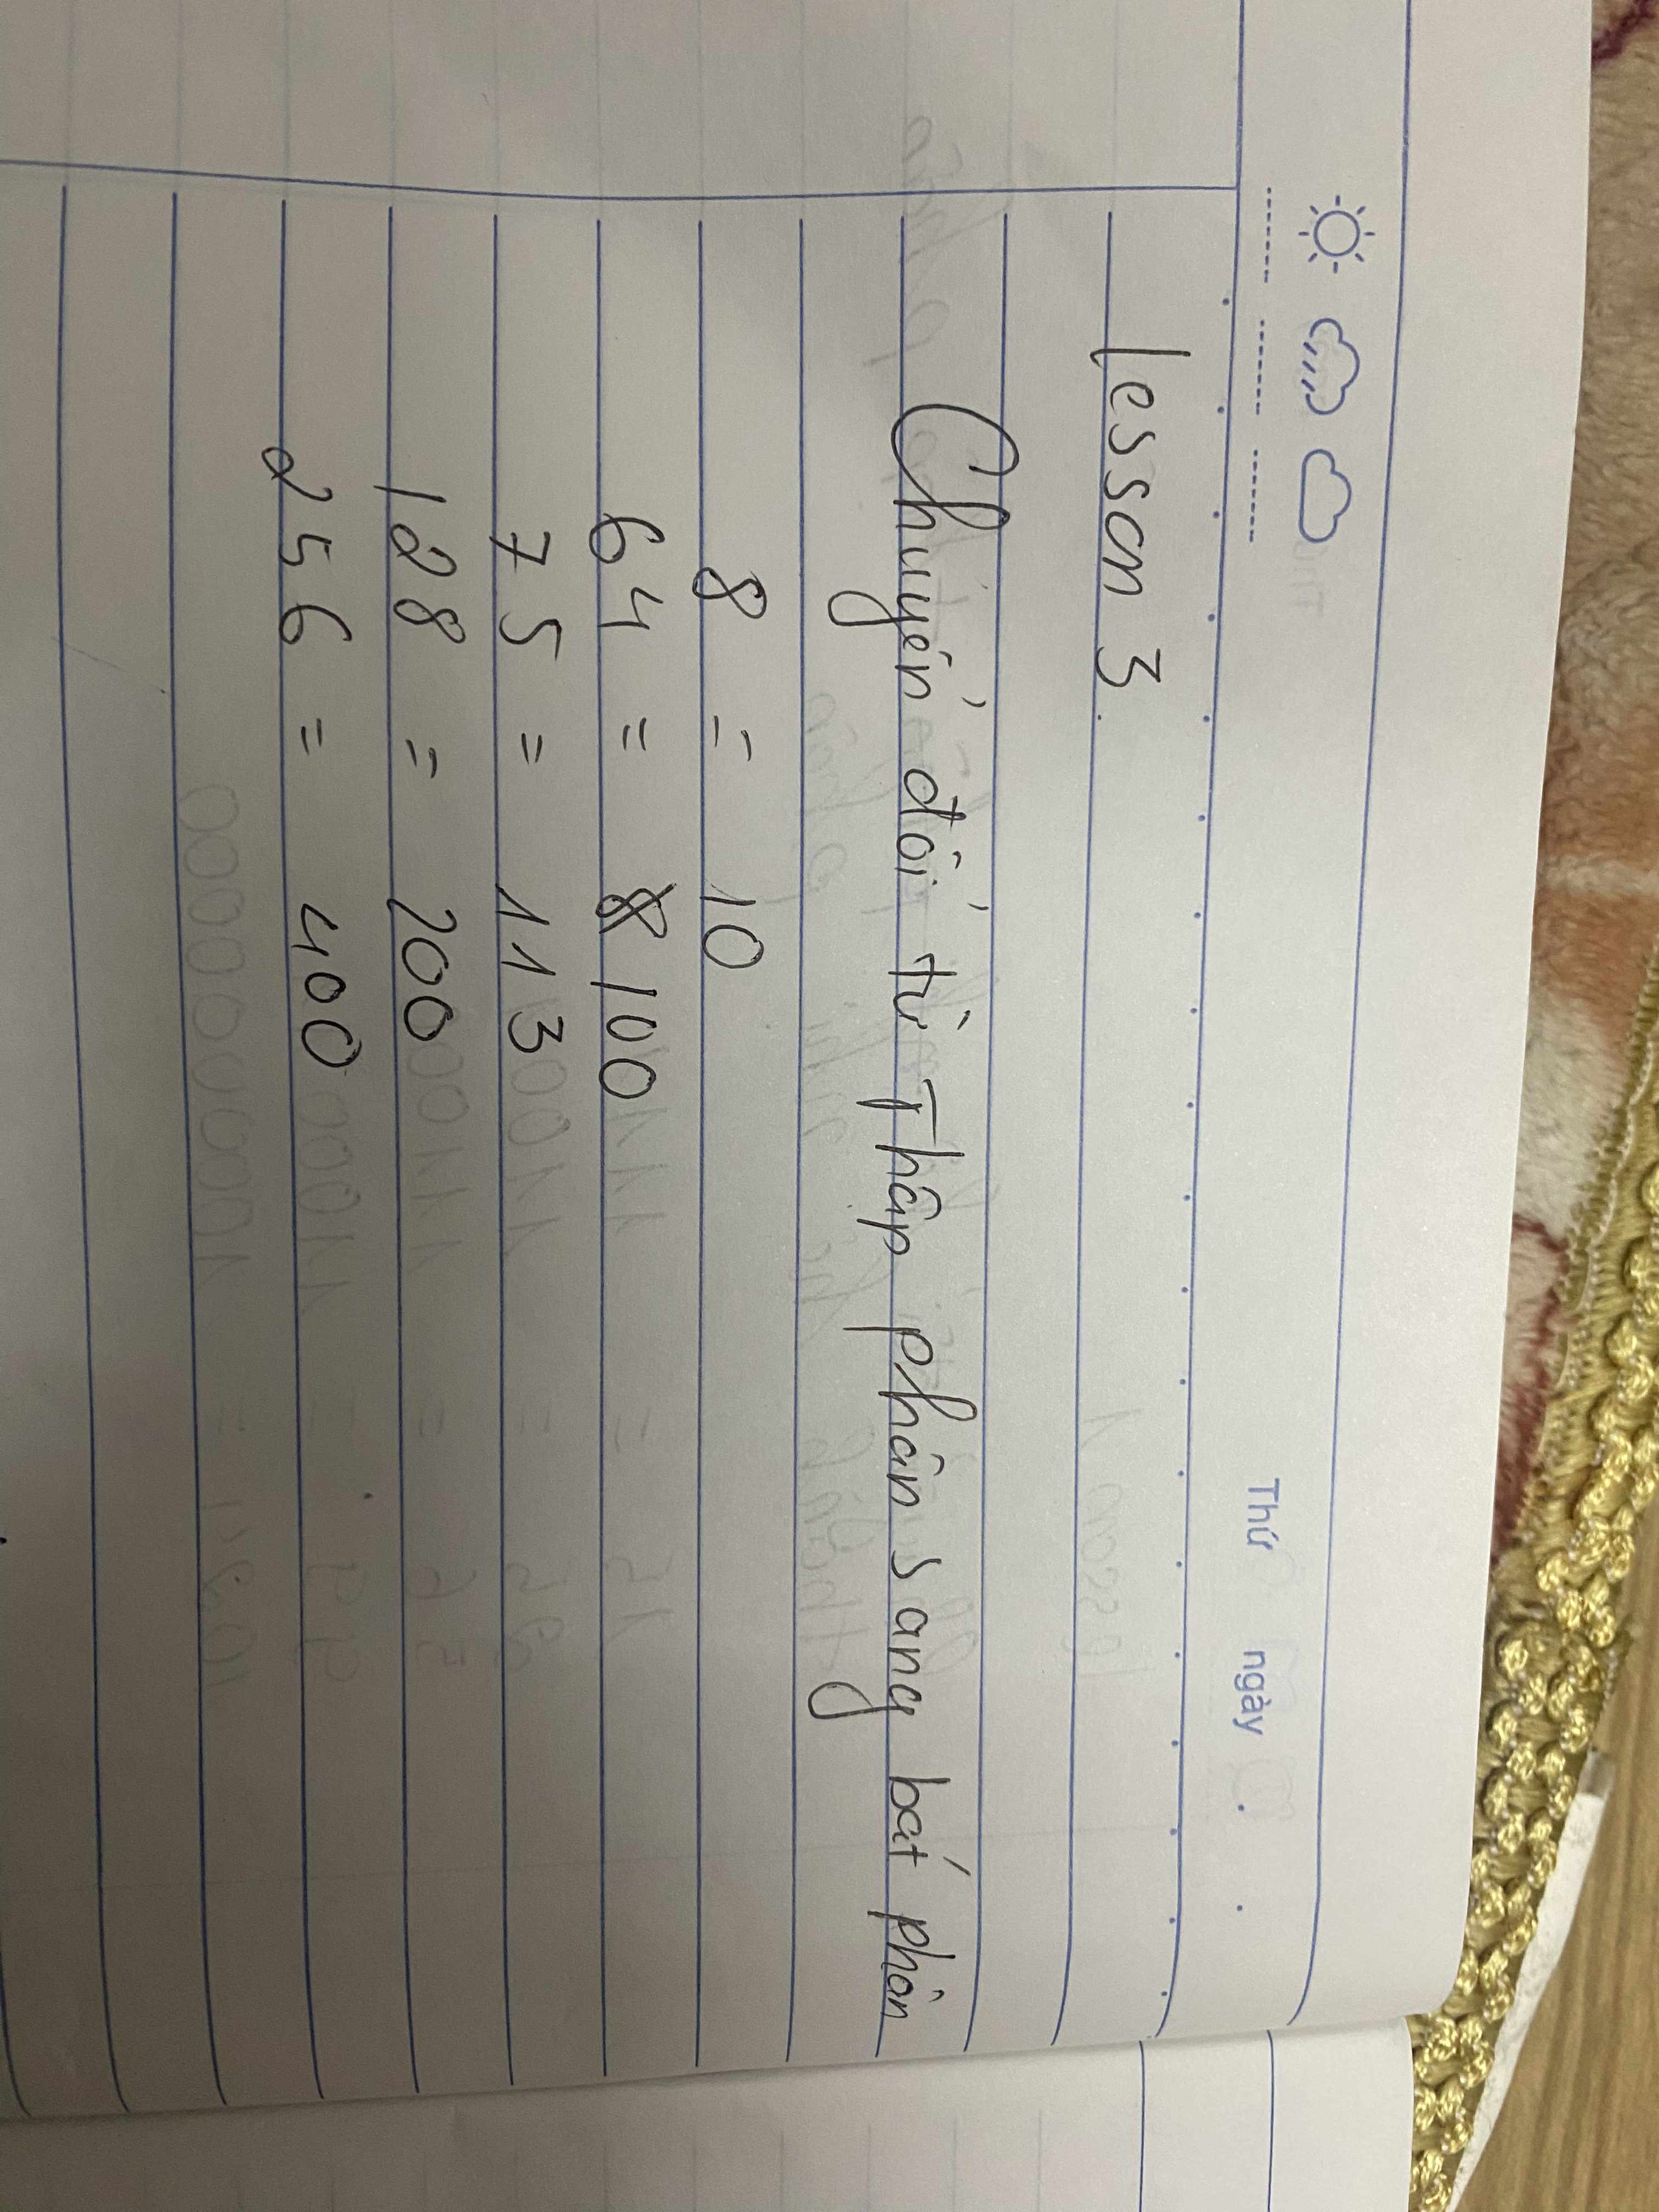 Thứ ngày
Lesson 3.
Chuyển đổi từ Thập phân sang bát phân
8 = 10
64 = 100
75 = 113
128 = 200
256 = 400